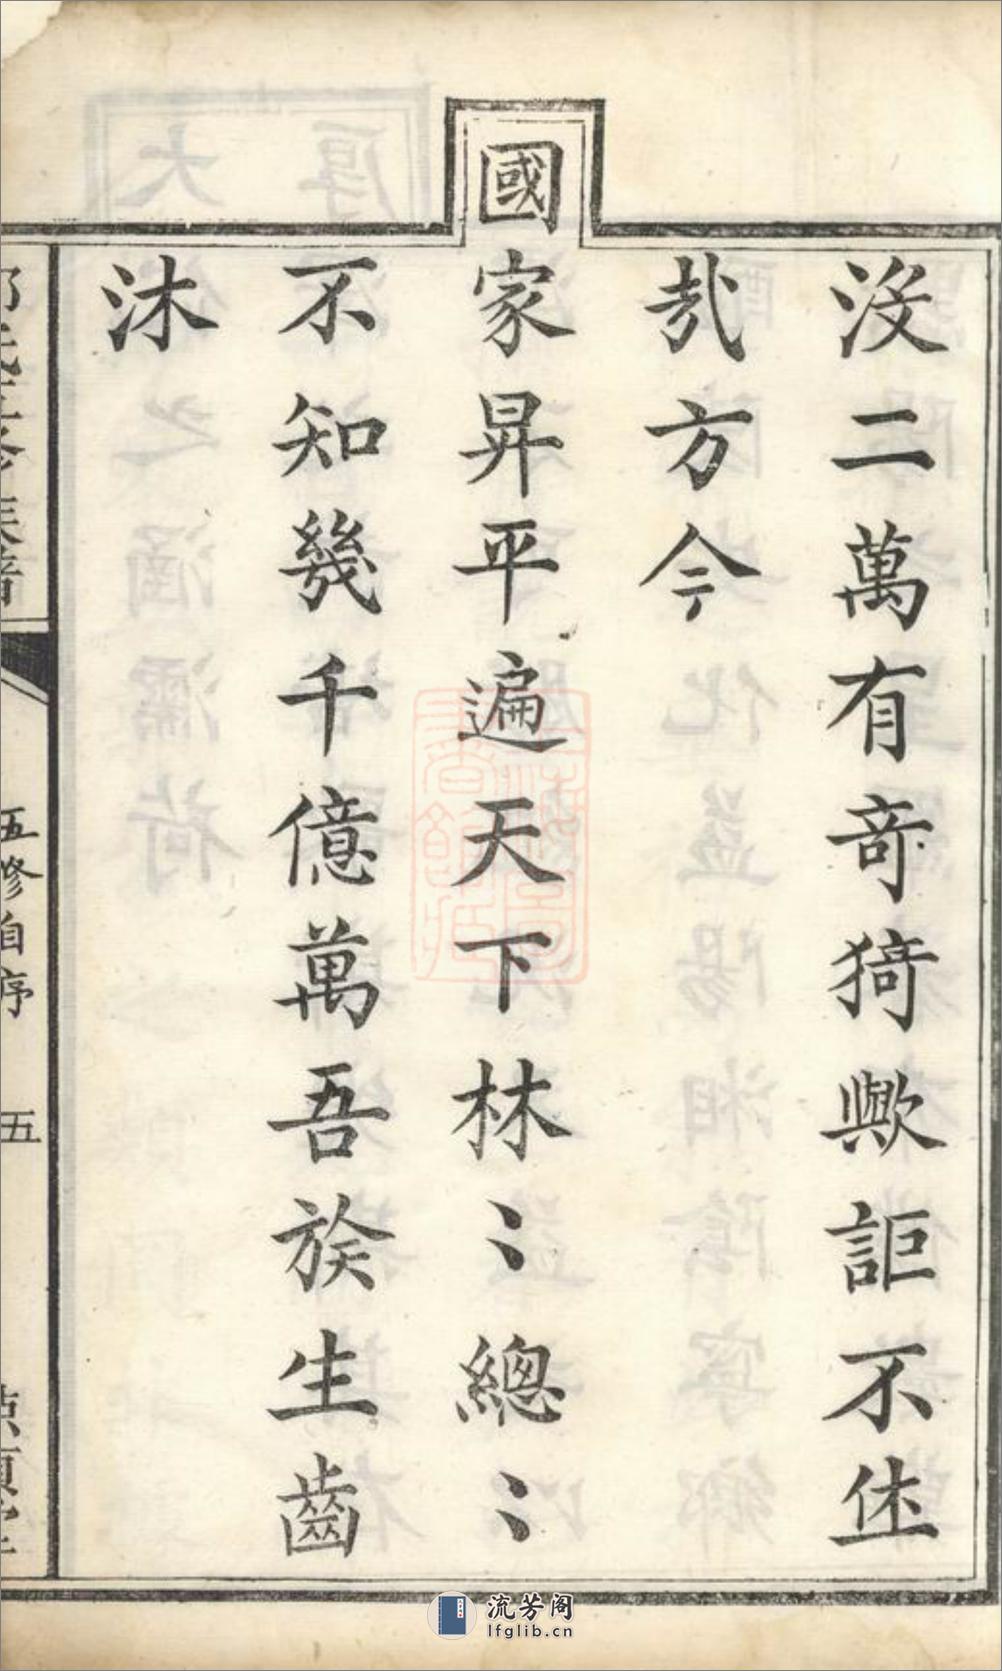 沒二萬有奇猗歟詎不㑌
㢤方今
國家昇平遍天下林〻總〻
不知幾千億萬吾族生齒
沐
五修自序
五
流芳阁
lfglib.cn